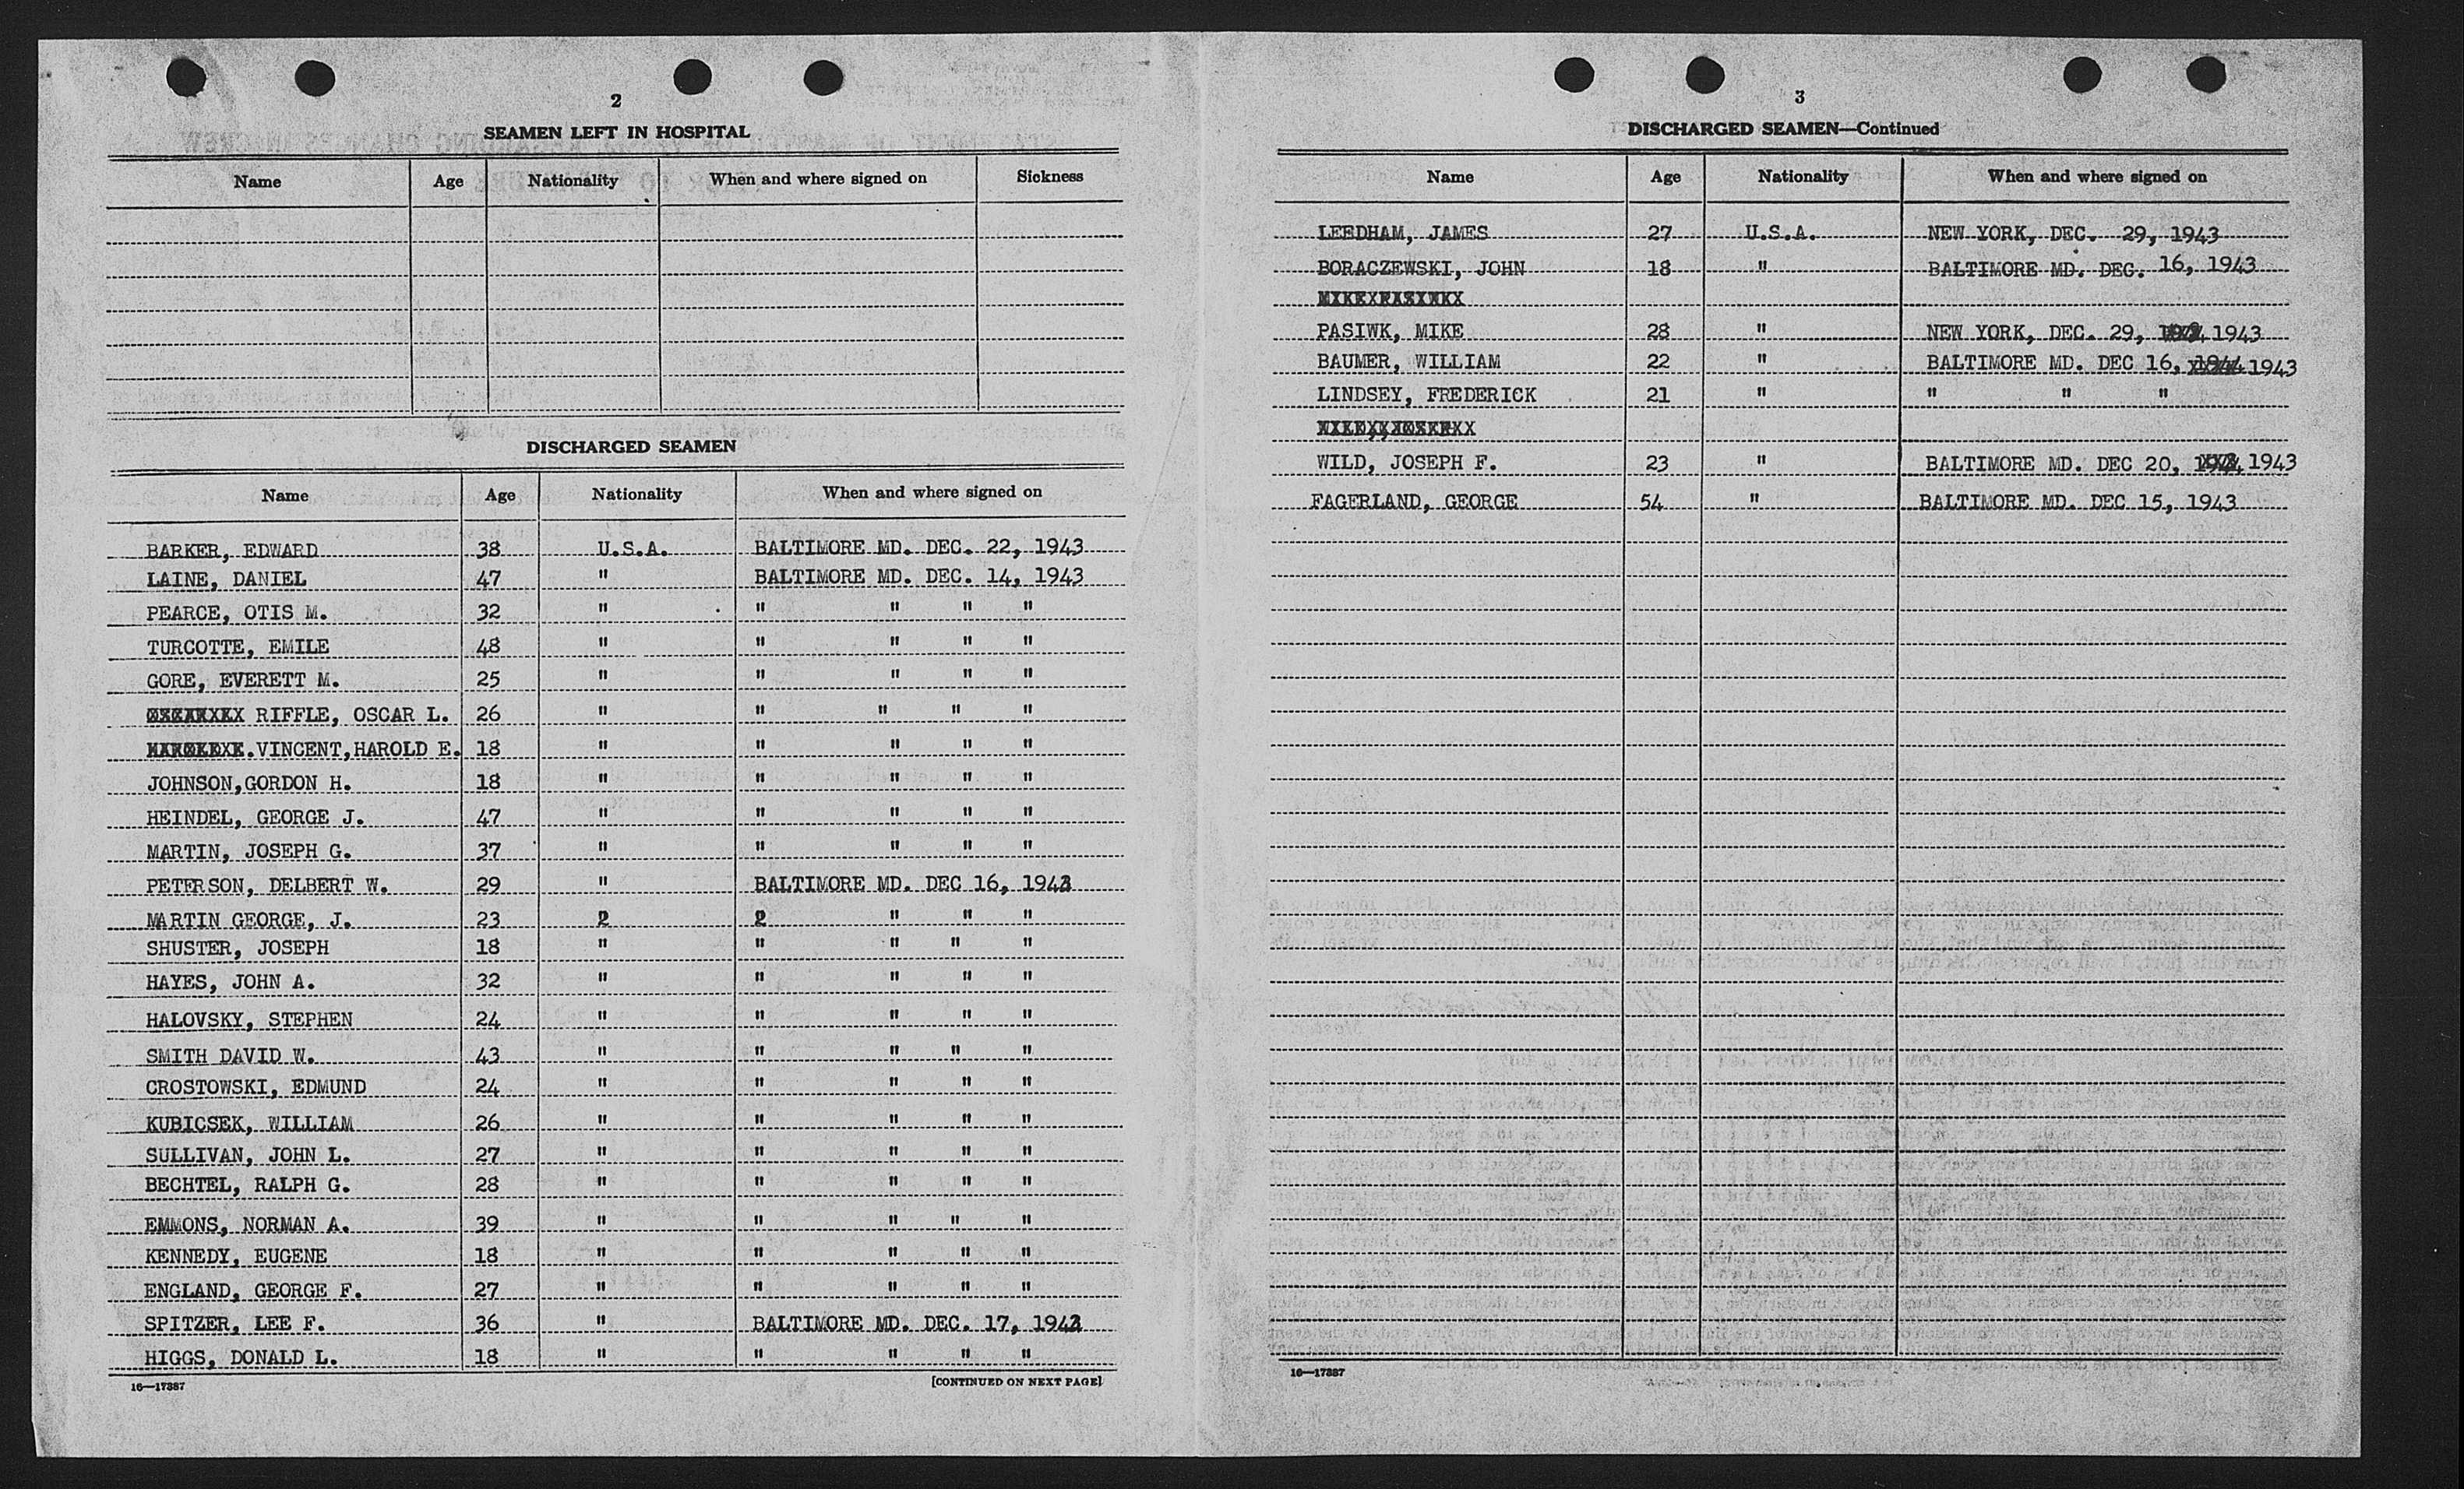 2
SEAMEN LEFT IN HOSPITAL
Name Age Nationality When and where signed on Sickness
DISCHARGED SEAMEN
Name Age Nationality When and where signed on
BARKER, EDWARD 38 U.S.A. BALTIMORE MD. DEC. 22, 1943
LAINE, DANIEL 47 " BALTIMORE MD. DEC. 14, 1943
PEARCE, OTIS M. 32 " " " " "
TURCOTTE, EMILE 48 " " " " "
GORE, EVERETT M. 25 " " " " "
RIFFLE, OSCAR L. 26 " " " " "
VINCENT, HAROLD E. 18 " " " " "
JOHNSON, GORDON H. 18 " " " " "
HEINDEL, GEORGE J. 47 " " " " "
MARTIN, JOSEPH G. 37 " " " " "
PETERSON, DELBERT W. 29 " BALTIMORE MD. DEC 16, 1943
MARTIN GEORGE, J. 23 " " " " "
SHUSTER, JOSEPH 18 " " " " "
HAYES, JOHN A. 32 " " " " "
HALOVSKY, STEPHEN 24 " " " " "
SMITH DAVID W. 43 " " " " "
CROSTOWSKI, EDMUND 24 " " " " "
KUBICSEK, WILLIAM 26 " " " " "
SULLIVAN, JOHN L. 27 " " " " "
BECHTEL, RALPH G. 28 " " " " "
EMMONS, NORMAN A. 39 " " " " "
KENNEDY, EUGENE 18 " " " " "
ENGLAND, GEORGE F. 27 " " " " "
SPITZER, LEE F. 36 " BALTIMORE MD. DEC. 17, 1943
HIGGS, DONALD L. 18 " " " " "
16—17387 [CONTINUED ON NEXT PAGE]
3
DISCHARGED SEAMEN—Continued
Name Age Nationality When and where signed on
LEEDHAM, JAMES 27 U.S.A. NEW YORK, DEC. 29, 1943
BORACZEWSKI, JOHN 18 " BALTIMORE MD. DEC. 16, 1943
PASIWK, MIKE 28 " NEW YORK, DEC. 29, 1943
BAUMER, WILLIAM 22 " BALTIMORE MD. DEC 16, 1944 1943
LINDSEY, FREDERICK 21 " " " "
WILD, JOSEPH F. 23 " BALTIMORE MD. DEC 20, 1943
FAGERLAND, GEORGE 54 " BALTIMORE MD. DEC 15, 1943
16—17387